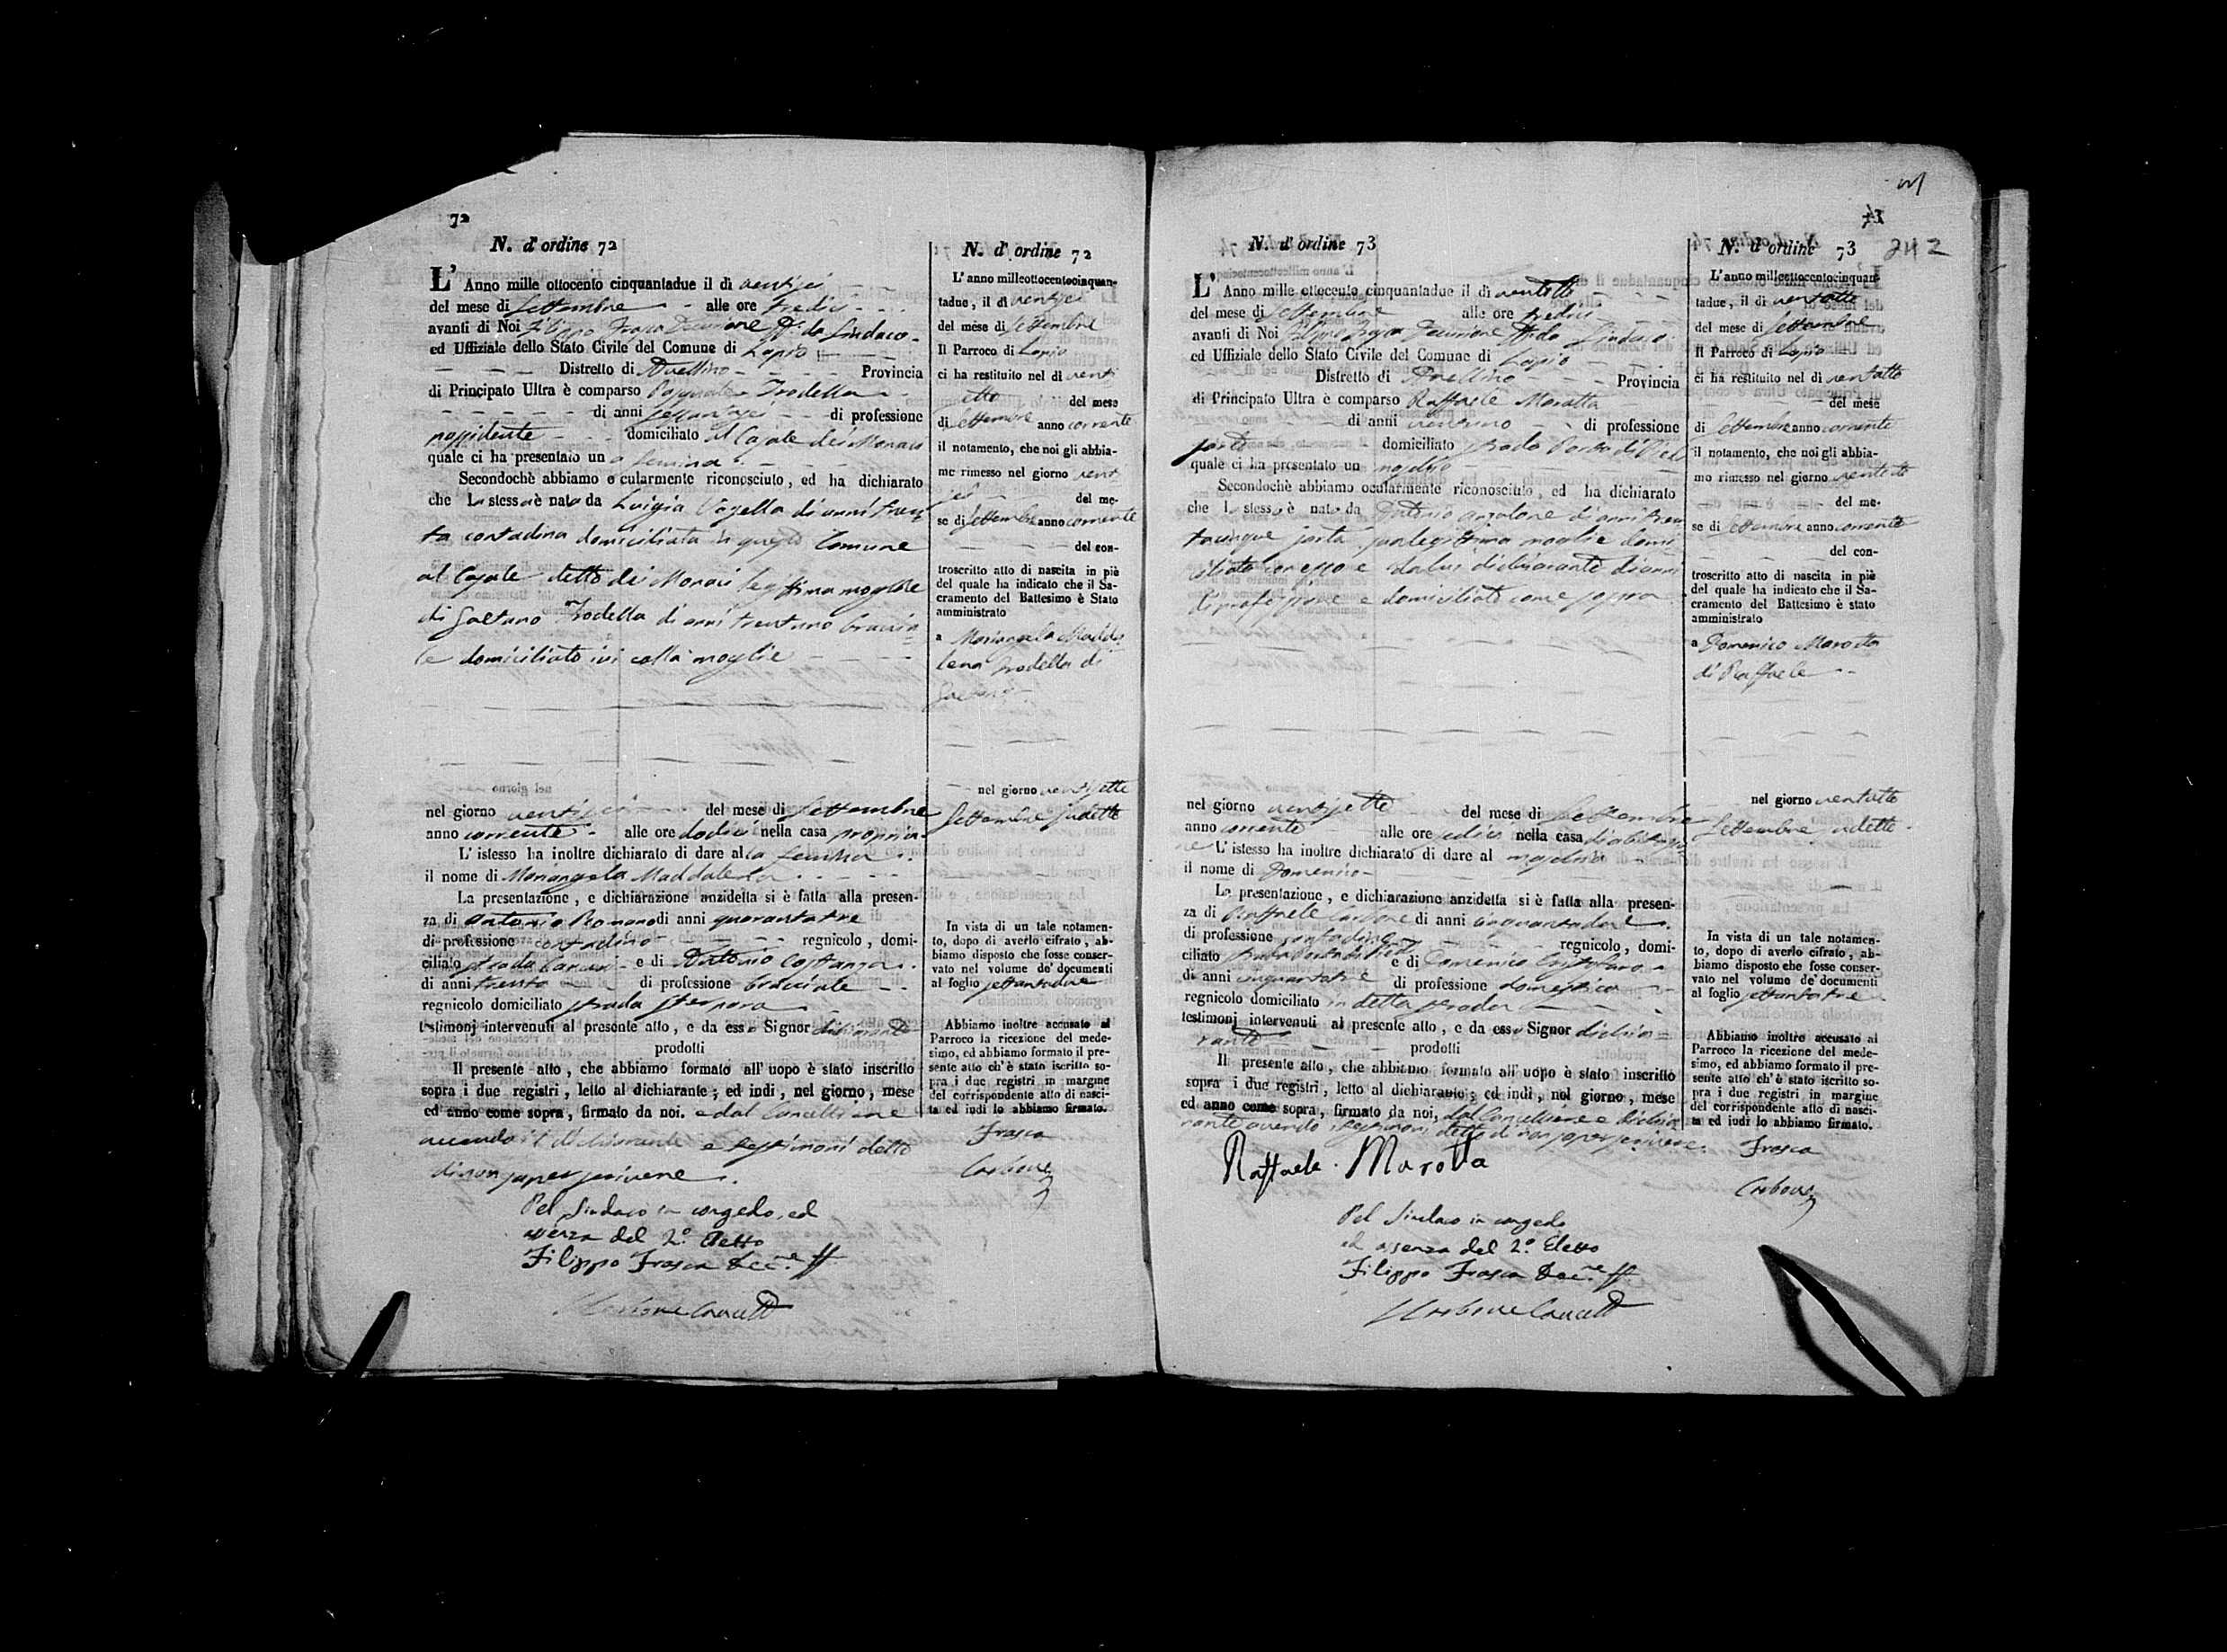 72
N. d'ordine 72
L'Anno mille ottocento cinquantadue il dì ventisei
del mese di Settembre alle ore tredici
avanti di Noi Filippo Frasca Decurione ff. da Sindaco
ed Uffiziale dello Stato Civile del Comune di Lapio
Distretto di Avellino Provincia
di Principato Ultra è comparso Pasquale Trodella
di anni sessantasei di professione
possidente domiciliato al Casale dei Monaci
quale ci ha presentato una femina
Secondochè abbiamo ocularmente riconosciuto, ed ha dichiarato
che la stessa è nata da Luigia di anni tren
ta contadina domiciliata in questo Comune
al Casale detto dei Monaci legittima moglie
di Gaetano Trodella di anni trentuno braccia
le domiciliato ivi colla moglie
nel giorno ventisei del mese di Settembre
anno corrente alle ore dodici nella casa propria
L'istesso ha inoltre dichiarato di dare alla femina
il nome di Mariangela Maddalena
La presentazione, e dichiarazione anzidetta si è fatta alla presen-
za di Antonio Romano di anni quarantatre
di professione contadino regnicolo, domi-
ciliato strada e di Antonio Costanza
di anni trenta di professione bracciale
regnicolo domiciliato strada
testimonj intervenuti al presente atto, e da esso Signor dichiarante
prodotti
Il presente atto, che abbiamo formato all'uopo è stato inscritto
sopra i due registri, letto al dichiarante; ed indi, nel giorno, mese
ed anno come sopra, firmato da noi. e dal Cancelliere
avendo il dichiarante e testimoni detto
di non saper scrivere.
Pel Sindaco in congedo, ed
assenza del 2.° Eletto
Filippo Frasca Dec.ne ff
Carbone Cancell
N. d'ordine 72
L'anno milleottocentocinquan-
tadue, il dì ventisei
del mese di Settembre
Il Parroco di Lapio
ci ha restituito nel dì venti
otto del mese
di Settembre anno corrente
il notamento, che noi gli abbia-
mo rimesso nel giorno vent
sei del me-
se di Settembre anno corrente
del con-
troscritto atto di nascita in piè
del quale ha indicato che il Sa-
cramento del Battesimo è Stato
amministrato
a Mariangela Madda
lena Trodella di
Gaetano
nel giorno ventisette
Settembre sudetto
In vista di un tale notamen-
to, dopo di averlo cifrato, ab-
biamo disposto che fosse conser-
vato nel volume de' documenti
al foglio settantadue
Abbiamo inoltre accusato al
Parroco la ricezione del mede-
simo, ed abbiamo formato il pre-
sente atto ch'è stato iscritto so-
pra i due registri in margine
del corrispondente atto di nasci-
ta ed indi lo abbiamo firmato.
Frasca
Carbone
74
242
N. d'ordine 73
L'Anno mille ottocento cinquantadue il dì ventotto
del mese di Settembre alle ore tredici
avanti di Noi Filippo Frasca Decurione ff. da Sindaco
ed Uffiziale dello Stato Civile del Comune di Lapio
Distretto di Avellino Provincia
di Principato Ultra è comparso Raffaele Marotta
di anni ventuno di professione
sarto domiciliato strada
quale ci ha presentato un maschio
Secondochè abbiamo ocularmente riconosciuto, ed ha dichiarato
che lo stesso è nato da Anzalone di anni tren
tacinque sarta sua legittima moglie domi
ciliata con esso e da lui dichiarante di anni
di professione e domiciliato come sopra
nel giorno ventisette del mese di Settembre
anno corrente alle ore sedici nella casa di abitazio
ne L'istesso ha inoltre dichiarato di dare al maschio
il nome di Domenico
La presentazione, e dichiarazione anzidetta si è fatta alla presen-
za di Raffaele Carbone di anni cinquantadue
di professione contadino regnicolo, domi-
ciliato e di Domenico Cristofaro
di anni cinquantatre di professione domestico
regnicolo domiciliato in detta strada
testimonj intervenuti al presente atto, e da esso Signor dichia
rante prodotti
Il presente atto, che abbiamo formato all'uopo è stato inscritto
sopra i due registri, letto al dichiarante; ed indi, nel giorno, mese
ed anno come sopra, firmato da noi, dal Cancelliere e dichia
rante avendo i testimoni detto di non saper scrivere.
Raffaele Marotta
Pel Sindaco in congedo
ed assenza del 2.° Eletto
Filippo Frasca Dec.ne ff
Carbone Cancell
N. d'ordine 73
L'anno milleottocentocinquan-
tadue, il dì ventotto
del mese di Settembre
Il Parroco di Lapio
ci ha restituito nel dì ventotto
del mese
di Settembre anno corrente
il notamento, che noi gli abbia-
mo rimesso nel giorno ventotto
del me-
se di Settembre anno corrente
del con-
troscritto atto di nascita in piè
del quale ha indicato che il Sa-
cramento del Battesimo è stato
amministrato
a Domenico Marotta
di Raffaele
nel giorno ventotto
Settembre sudetto
In vista di un tale notamen-
to, dopo di averlo cifrato, ab-
biamo disposto che fosse conser-
vato nel volume de' documenti
al foglio settantatre
Abbiamo inoltre accusato al
Parroco la ricezione del mede-
simo, ed abbiamo formato il pre-
sente atto ch'è stato iscritto so-
pra i due registri in margine
del corrispondente atto di nasci-
ta ed indi lo abbiamo firmato.
Frasca
Carbone